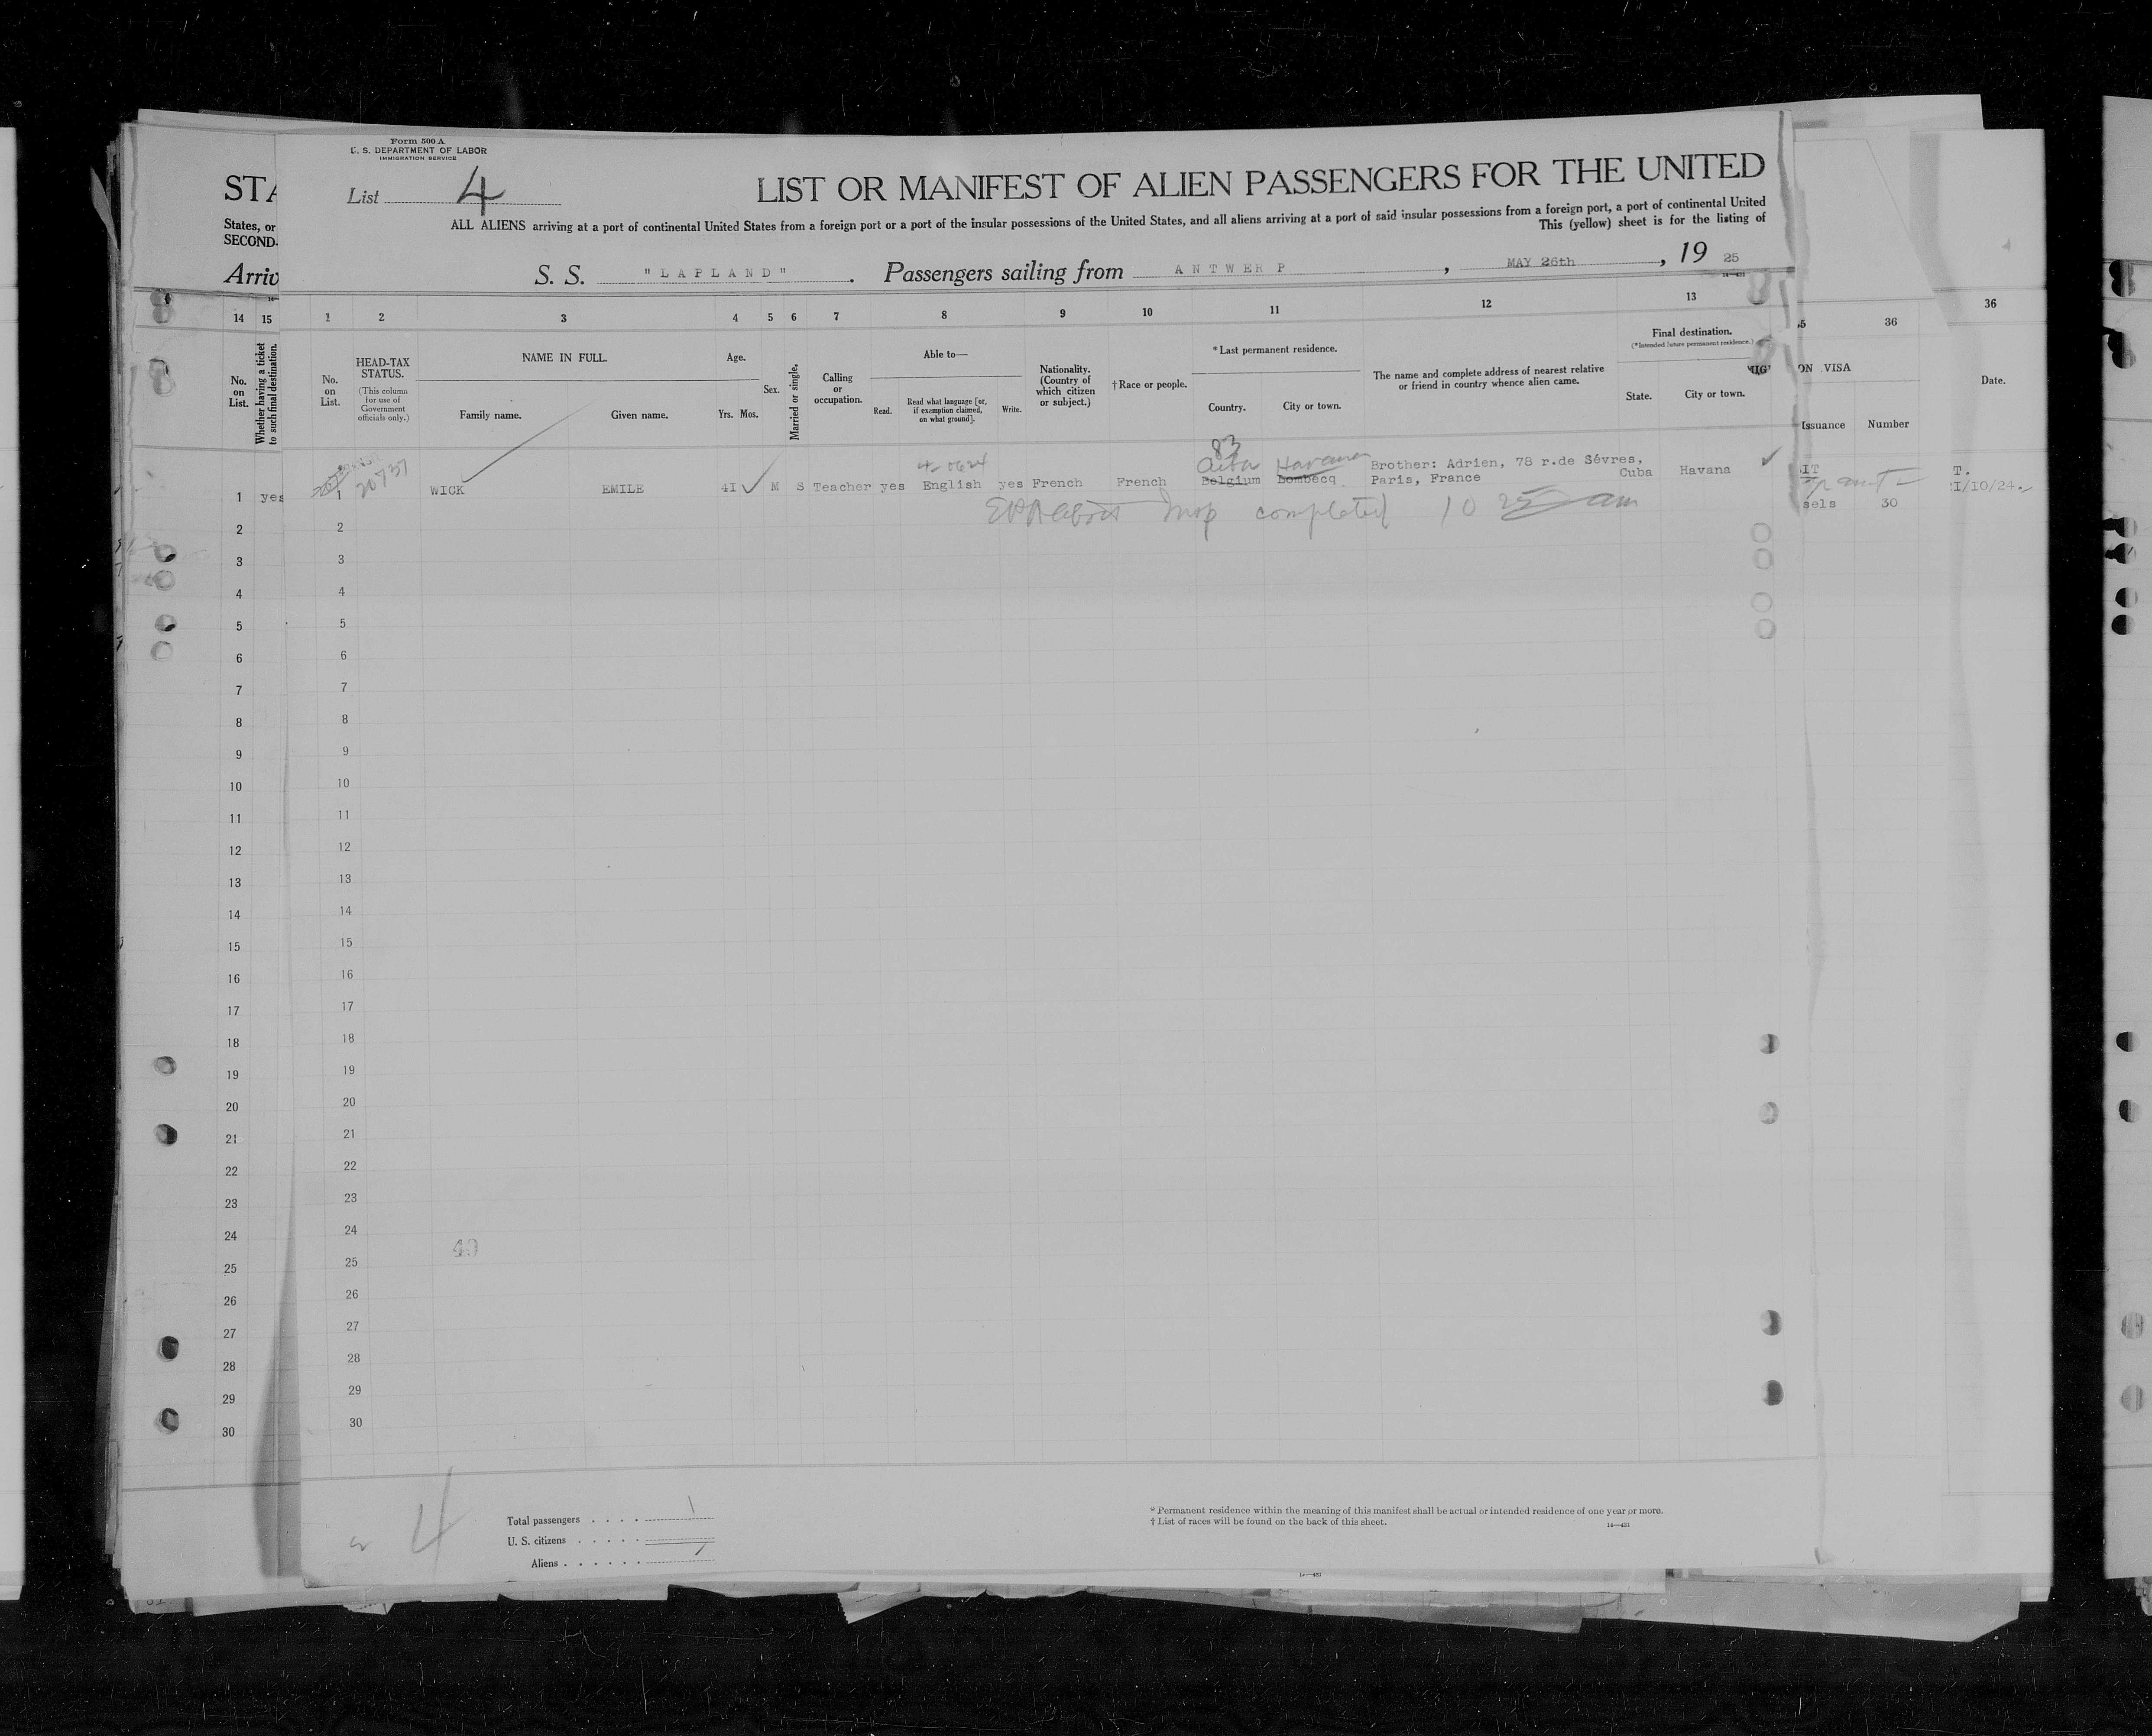 Form 500 A
U. S. DEPARTMENT OF LABOR
IMMIGRATION SERVICE
List 4
LIST OR MANIFEST OF ALIEN PASSENGERS FOR THE UNITED
STA
ALL ALIENS arriving at a port of continental United States from a foreign port or a port of the insular possessions of the United States, and all aliens arriving at a port of said insular possessions from a foreign port, a port of continental United
States, or
This (yellow) sheet is for the listing of
SECOND-
Arriv
S. S. "LAPLAND". Passengers sailing from ANTWERP, MAY 26th, 19 25
14 15 1 2 3 4 5 6 7 8 9 10 11 12 13 36 36
No. on List.
Whether having a ticket to such final destination.
No. on List.
HEAD-TAX STATUS.
(This column for use of Government officials only.)
NAME IN FULL.
Family name. Given name.
Age.
Yrs. Mos.
Sex.
Married or single.
Calling or occupation.
Able to—
Read.
Read what language [or, if exemption claimed, on what ground].
Write.
Nationality. (Country of which citizen or subject.)
† Race or people.
*Last permanent residence.
Country. City or town.
The name and complete address of nearest relative or friend in country whence alien came.
Final destination.
(*Intended future permanent residence.)
State. City or town.
ON VISA
Issuance Number
Date.
83
Cuba Havana
1 yes 1 20737 WICK EMILE 4I M S Teacher yes English yes French French Belgium Bombecq Brother: Adrien, 78 r.de Sévres, Paris, France Cuba Havana
sels 30
I/10/24.
Insp completed 10 25 am
2 2
3 3
4 4
5 5
6 6
7 7
8 8
9 9
10 10
11 11
12 12
13 13
14 14
15 15
16 16
17 17
18 18
19 19
20 20
21 21
22 22
23 23
24 24
49
25 25
26 26
27 27
28 28
29 29
30 30
4
Total passengers . . . . 1
U. S. citizens . . . . .
Aliens . . . . . . 1
* Permanent residence within the meaning of this manifest shall be actual or intended residence of one year or more.
† List of races will be found on the back of this sheet.
14—421